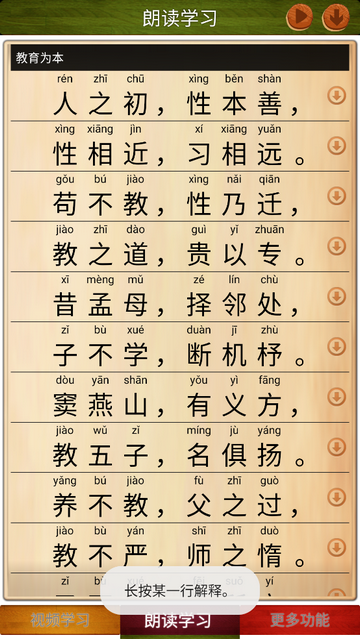 朗读学习
教育为本
rén zhī chū xìng běn shàn
人之初，性本善，
xìng xiāng jìn xí xiāng yuǎn
性相近，习相远。
gǒu bú jiào xìng nǎi qiān
苟不教，性乃迁，
jiào zhī dào guì yǐ zhuān
教之道，贵以专。
xī mèng mǔ zé lín chù
昔孟母，择邻处，
zǐ bù xué duàn jī zhù
子不学，断机杼。
dòu yān shān yǒu yì fāng
窦燕山，有义方，
jiào wǔ zǐ míng jù yáng
教五子，名俱扬。
yǎng bú jiào fù zhī guò
养不教，父之过，
jiào bù yán shī zhī duò
教不严，师之惰。
长按某一行解释。
视频学习 朗读学习 更多功能